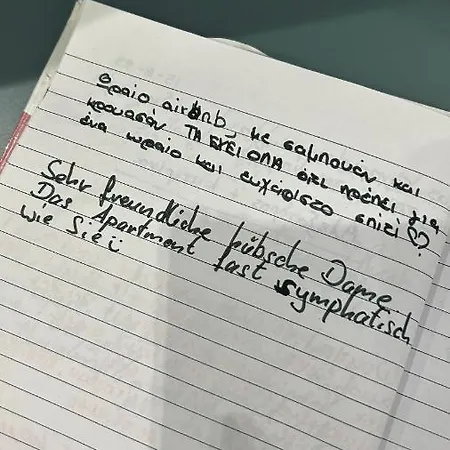 Ωραίο airbnb, με σαμπουάν και
κρουασάν ΤΑ ΕΧΕΙ ΟΛΑ ότι πρέπει για
ένα ωραίο και ευχάριστο σπίτι ♡
Sehr freundliche hübsche Dame.
Das Apartment fast symphatisch
wie Sie ü